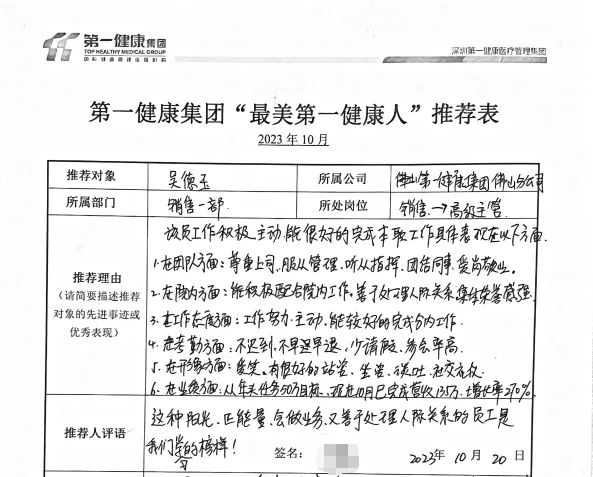 第一健康集团
TOP HEALTHY MEDICAL GROUP
深圳第一健康医疗管理集团
第一健康集团“最美第一健康人”推荐表
2023 年 10 月
推荐对象 吴德玉 所属公司 佛山第一健康集团佛山分公司
所属部门 销售一部 所处岗位 销售→高级主管
推荐理由
(请简要描述推荐对象的先进事迹或优秀表现)
该员工作积极主动,能很好的完成本职工作具体表现在以下方面
1.在团队方面:尊重上司,服从管理,听从指挥,团结同事,爱岗敬业。
2.在院内方面:能积极配合院内工作。善于处理人际关系,集体荣誉感强。
3.在工作态度方面:工作努力主动,能较好的完成分内工作.
4.在考勤方面:不迟到,不早退,少请假,参会率高.
5.在形象方面:爱笑。有很好的站姿、坐姿、谈吐、社交礼仪
6.在业绩方面:从年关任务50万目标,现在10月已完成营收135万,增长率270%.
推荐人评语
这种阳光,正能量,会做业务,又善于处理人际关系的员工是
我们学习的榜样!
签名: 2023 年 10 月 20 日